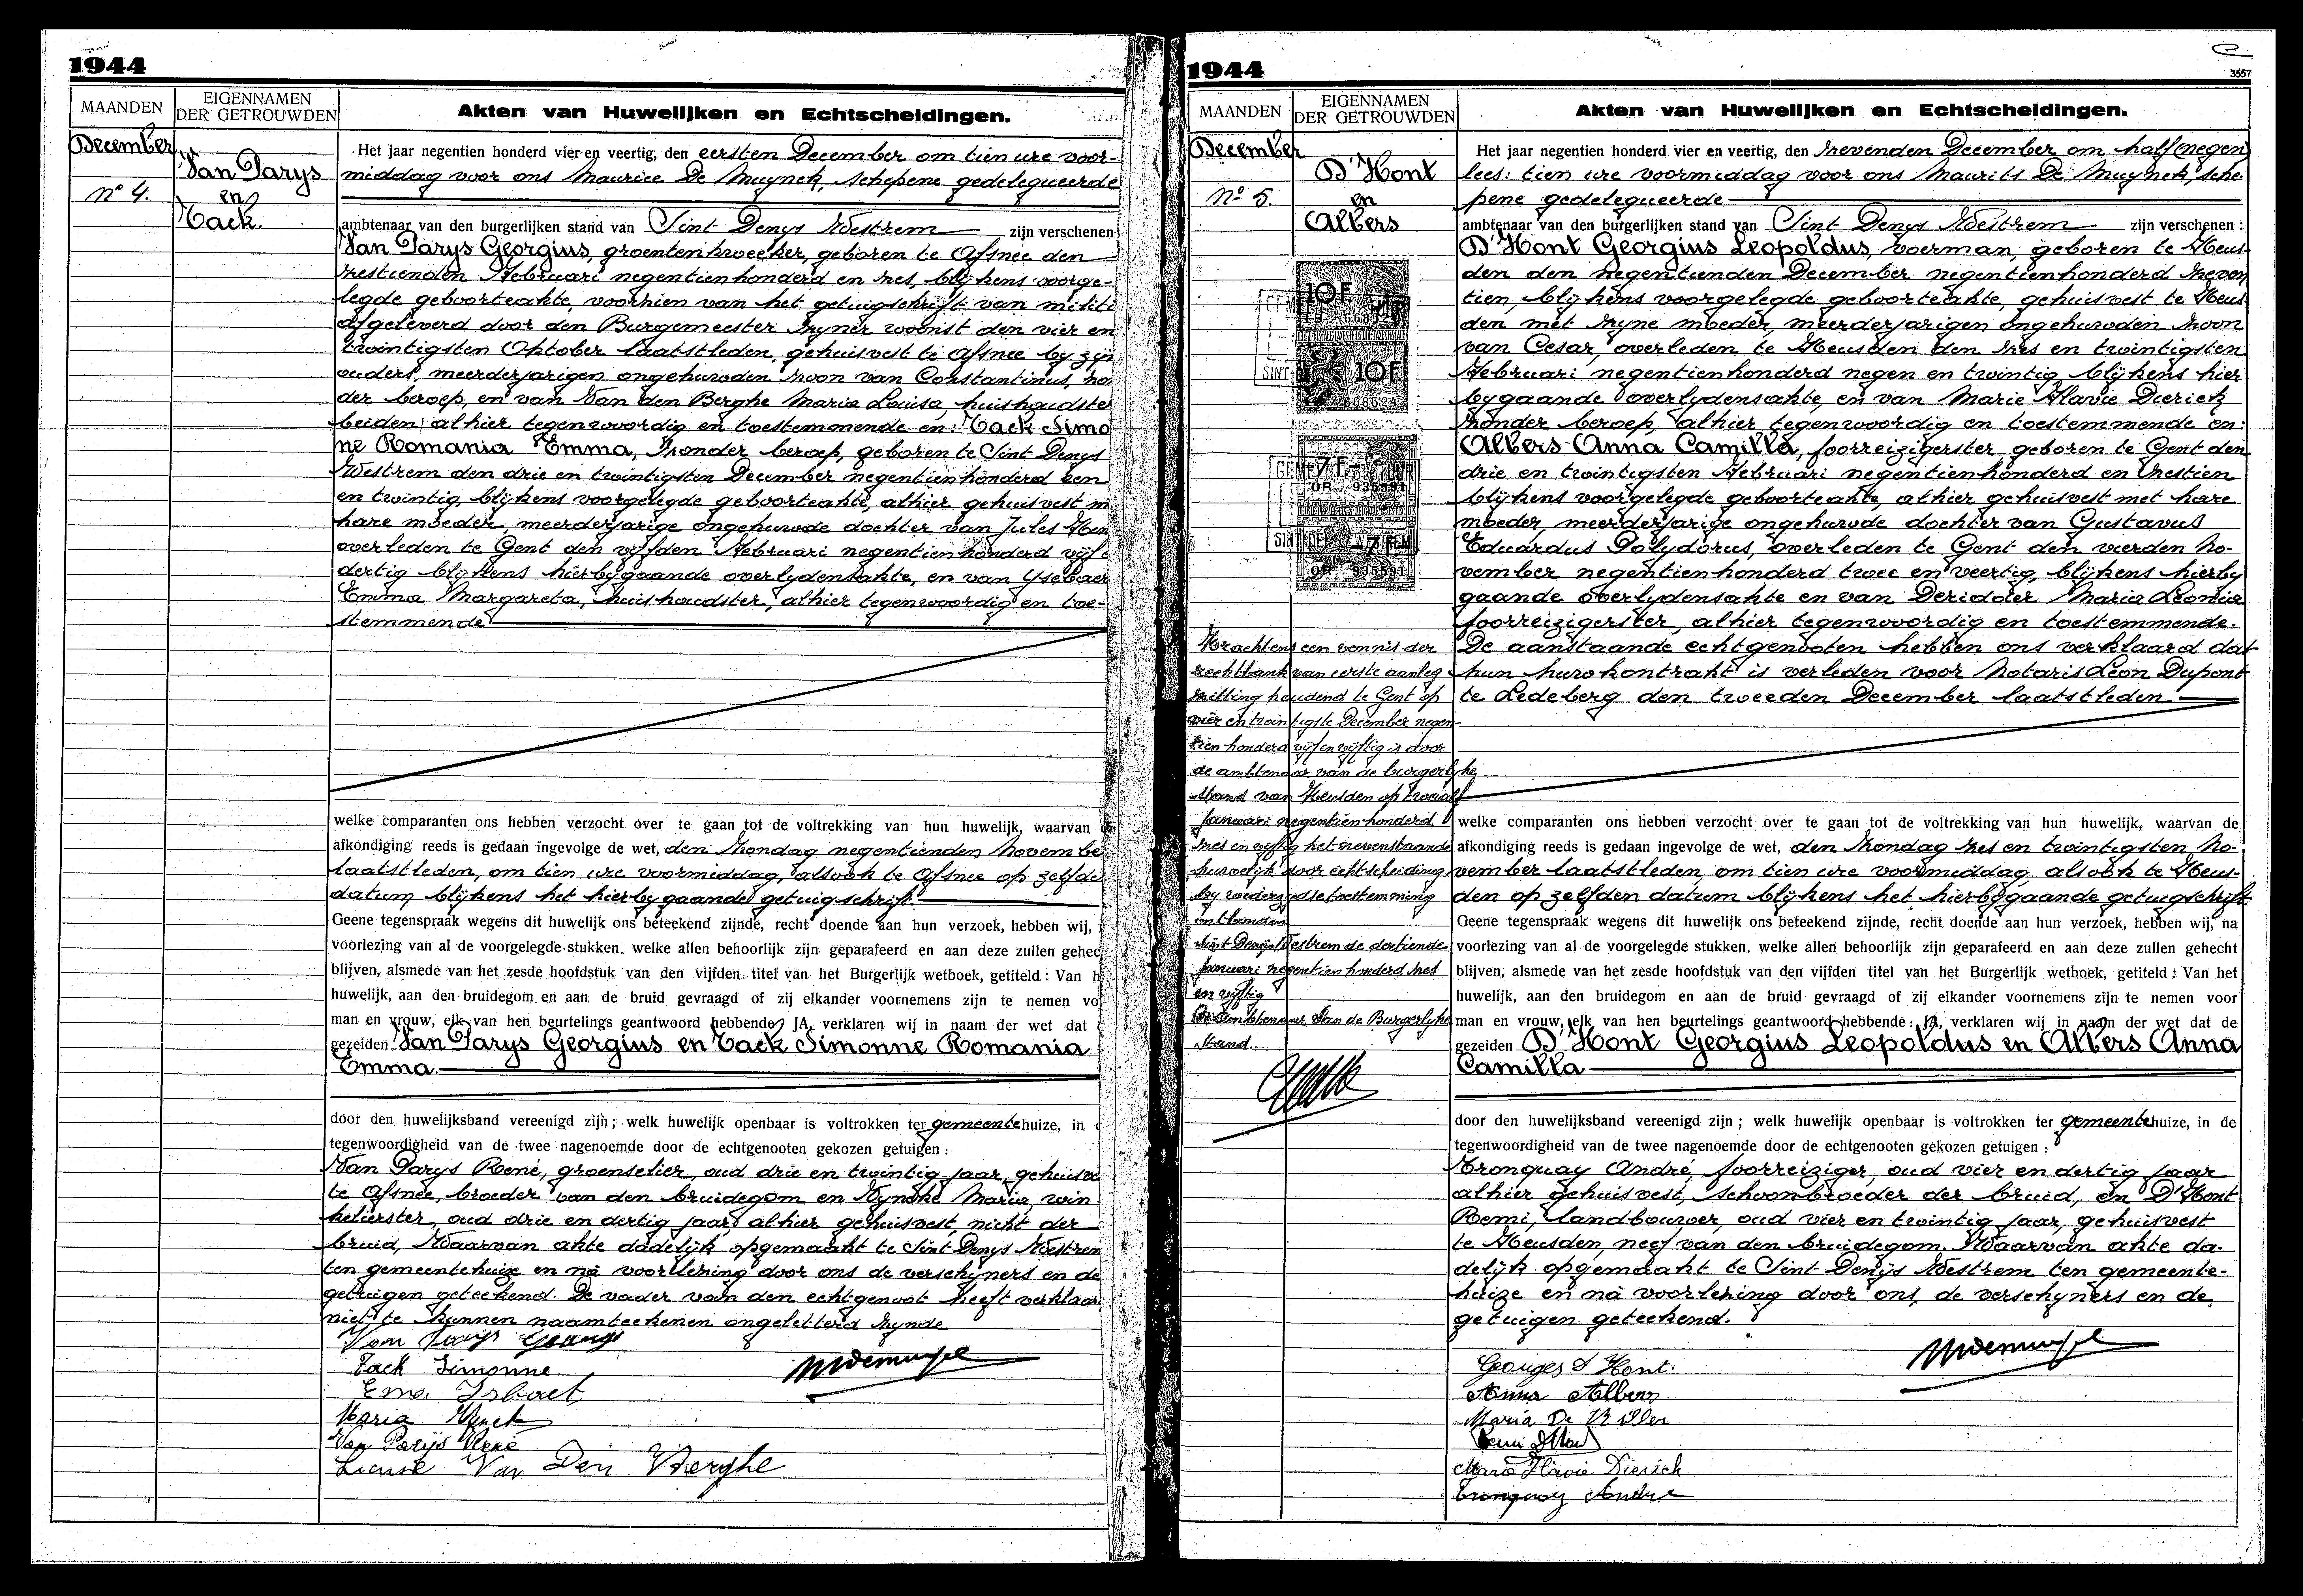 1944
MAANDEN
EIGENNAMEN
DER GETROUWDEN
Akten van Huwelijken en Echtscheidingen.
December
Van Parys
N° 4.
en
Tack.
Het jaar negentien honderd vier en veertig, den eersten December om tien ure voor-
middag voor ons Maurice De Muynck, schepene gedelegueerde
ambtenaar van den burgerlijken stand van Sint Denys Westrem zijn verschenen
Van Parys Georgius, groentenkweeker, geboren te Afsnee den
zestienden Februari negentienhonderd en zes, blijkens voorge-
legde geboorteakte, voorzien van het getuigschrift van militi
afgeleverd door den Burgemeester zyner woonst den vier en
twintigsten Oktober laatstleden, gehuisvest te Afsnee by zyn
ouders, meerderjarigen ongehuwden zoon van Constantinus, zon
der beroep, en van Van den Berghe Maria Louisa, huishoudster
beiden alhier tegenwoordig en toestemmende en: Tack Simo
ne Romania Emma, zonder beroep, geboren te Sint Denys
Westrem den drie en twintigsten December negentienhonderd een
en twintig, blijkens voorgelegde geboorteakte, alhier gehuisvest m
hare moeder, meerderjarige ongehuwde dochter van Jules Hen
overleden te Gent den vijfden Februari negentienhonderd vijf
dertig blijkens hierbygaande overlydensakte, en van Ysebaer
Emma Margareta, huishoudster, alhier tegenwoordig en toe-
stemmende
welke comparanten ons hebben verzocht over te gaan tot de voltrekking van hun huwelijk, waarvan
afkondiging reeds is gedaan ingevolge de wet, den Zondag negentienden Novembe
laatstleden, om tien ure voormiddag, alsook te Afsnee op zelfde
datum blijkens het hierbygaande getuigschrift.
Geene tegenspraak wegens dit huwelijk ons beteekend zijnde, recht doende aan hun verzoek, hebben wij,
voorlezing van al de voorgelegde stukken, welke allen behoorlijk zijn geparafeerd en aan deze zullen gehec
blijven, alsmede van het zesde hoofdstuk van den vijfden titel van het Burgerlijk wetboek, getiteld : Van h
huwelijk, aan den bruidegom en aan de bruid gevraagd of zij elkander voornemens zijn te nemen vo
man en vrouw, elk van hen beurtelings geantwoord hebbende JA, verklaren wij in naam der wet dat
gezeiden Van Parys Georgius en Tack Simonne Romania
Emma.
door den huwelijksband vereenigd zijn ; welk huwelijk openbaar is voltrokken ter gemeentehuize, in
tegenwoordigheid van de twee nagenoemde door de echtgenooten gekozen getuigen :
Van Parys René, groenselier, oud drie en twintig jaar, gehuisve
te Afsnee, broeder van den bruidegom en Wyncke Maria, win
kelierster, oud drie en dertig jaar, alhier gehuisvest, nicht der
bruid, Waarvan akte dadelijk opgemaakt te Sint Denys Westrem
ten gemeentehuize en na voorlezing door ons de verschyners en de
getuigen geteekend. De vader van den echtgenoot heeft verklaar
niet te kunnen naamteekenen ongeletterd zynde
Van Parys Georges
Tack Simonne
Ema Isbaet
Maria Wynck
Van Parijs René
Van Den Berghe
1944
3557
MAANDEN
EIGENNAMEN
DER GETROUWDEN
Akten van Huwelijken en Echtscheidingen.
December
D'Hont
N° 5.
en
Albers
Het jaar negentien honderd vier en veertig, den zevenden December om half negen
lees: tien ure voormiddag voor ons Maurits De Muynck, sche
pene gedelegueerde
ambtenaar van den burgerlijken stand van Sint Denys Westrem zijn verschenen :
D'Hont Georgius Leopoldus, voerman, geboren te Heus-
den den negentienden December negentienhonderd zeven
tien, blijkens voorgelegde geboorteakte, gehuisvest te Heus
den met zyne moeder, meerderjarigen ongehuwden zoon
van Cesar, overleden te Heusden den zes en twintigsten
Februari negentienhonderd negen en twintig blijkens hier
bygaande overlydensakte, en van Marie Flavie Dierick
zonder beroep, alhier tegenwoordig en toestemmende en:
Albers Anna Camilla, foorreizigerster geboren te Gent den
drie en twintigsten Februari negentienhonderd en zestien
blijkens voorgelegde geboorteakte, alhier gehuisvest met hare
moeder, meerderjarige ongehuwde dochter van Gustavus
Eduardus Polydorus, overleden te Gent den vierden No-
vember negentienhonderd twee en veertig, blijkens hierby
gaande overlydensakte en van Deridder Maria Leonia
foorreizigerster, alhier tegenwoordig en toestemmende.
De aanstaande echtgenooten hebben ons verklaard dat
hun huwkontrakt is verleden voor Notaris Léon Dupont
te Ledeberg den tweeden December laatstleden
10F
10F
7F
Krachtens een vonnis der
rechtbank van eerste aanleg
zitting houdend te Gent op
vier en twintigste December negen-
tien honderd vijf en vijftig is door
de ambtenaar van de burgerlyke
stand van Heusden op twaalf
Januari negentien honderd
zes en vijftig het nevenstaande
huwelijk door echtscheiding
by wederzydse toestemming
ontbonden
Sint Denijs Westrem de dertiende
Januari negentien honderd zes
en vijftig
De ambtenaar van de Burgerlyke
Stand.
welke comparanten ons hebben verzocht over te gaan tot de voltrekking van hun huwelijk, waarvan de
afkondiging reeds is gedaan ingevolge de wet, den Zondag zes en twintigsten No-
vember laatstleden, om tien ure voormiddag, alsook te Heus-
den op zelfden datum blijkens het hierbygaande getuigschrift
Geene tegenspraak wegens dit huwelijk ons beteekend zijnde, recht doende aan hun verzoek, hebben wij, na
voorlezing van al de voorgelegde stukken, welke allen behoorlijk zijn geparafeerd en aan deze zullen gehecht
blijven, alsmede van het zesde hoofdstuk van den vijfden titel van het Burgerlijk wetboek, getiteld : Van het
huwelijk, aan den bruidegom en aan de bruid gevraagd of zij elkander voornemens zijn te nemen voor
man en vrouw, elk van hen beurtelings geantwoord hebbende : JA, verklaren wij in naam der wet dat de
gezeiden D'Hont Georgius Leopoldus en Albers Anna
Camilla
door den huwelijksband vereenigd zijn ; welk huwelijk openbaar is voltrokken ter gemeentehuize, in de
tegenwoordigheid van de twee nagenoemde door de echtgenooten gekozen getuigen :
Tronquay André, foorreiziger, oud vier en dertig jaar
alhier gehuisvest, schoonbroeder der bruid, en D'Hont
Remi, landbouwer, oud vier en twintig jaar, gehuisvest
te Heusden, neef van den bruidegom. Waarvan akte da-
delijk opgemaakt te Sint Denijs Westrem ten gemeente-
huize en na voorlezing door ons, de verschyners en de
getuigen geteekend.
Georges D'Hont.
Anna Albers
Maria De Ridder
Marie Flavie Dierick
Tronquay Andre